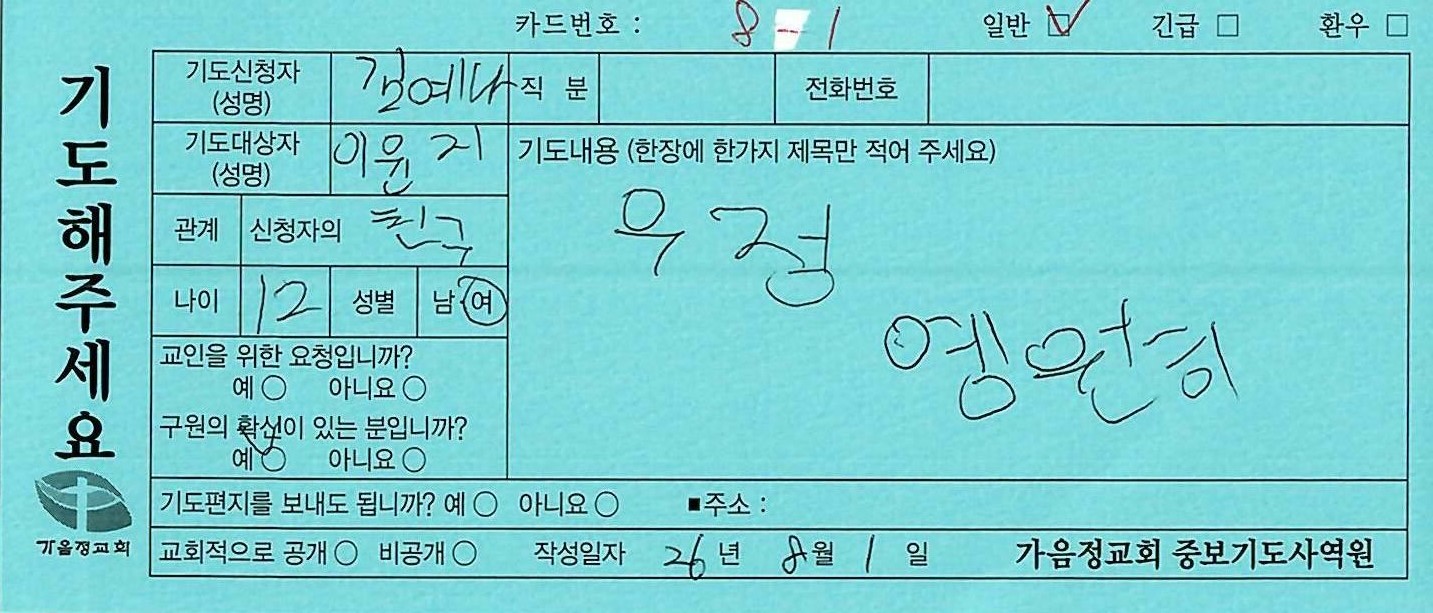 카드번호 : 8-1 일반 ☑ 긴급 □ 환우 □
기도해주세요
기도신청자 (성명) 김예나 직 분 전화번호
기도대상자 (성명) 이윤지 기도내용 (한장에 한가지 제목만 적어 주세요)
관계 신청자의 친구
우정
나이 12 성별 남 여
영원히
교인을 위한 요청입니까?
예 ○ 아니요 ○
구원의 확신이 있는 분입니까?
예 ○ 아니요 ○
기도편지를 보내도 됩니까? 예 ○ 아니요 ○ ■주소 :
가음정교회
교회적으로 공개 ○ 비공개 ○ 작성일자 26년 8월 1일 가음정교회 중보기도사역원